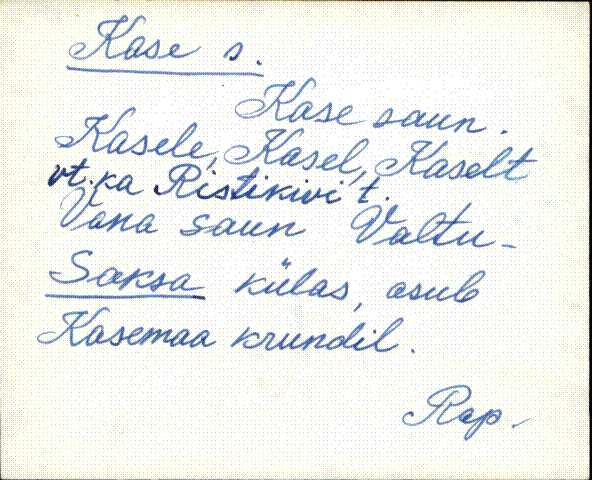 Kase s.
Kase saun.
Kasele, Kasel, Kaselt
vt. ka Ristikivi t.
Vana saun Valtu-
Saksa külas, asub
Kasemaa krundil.
Rap.